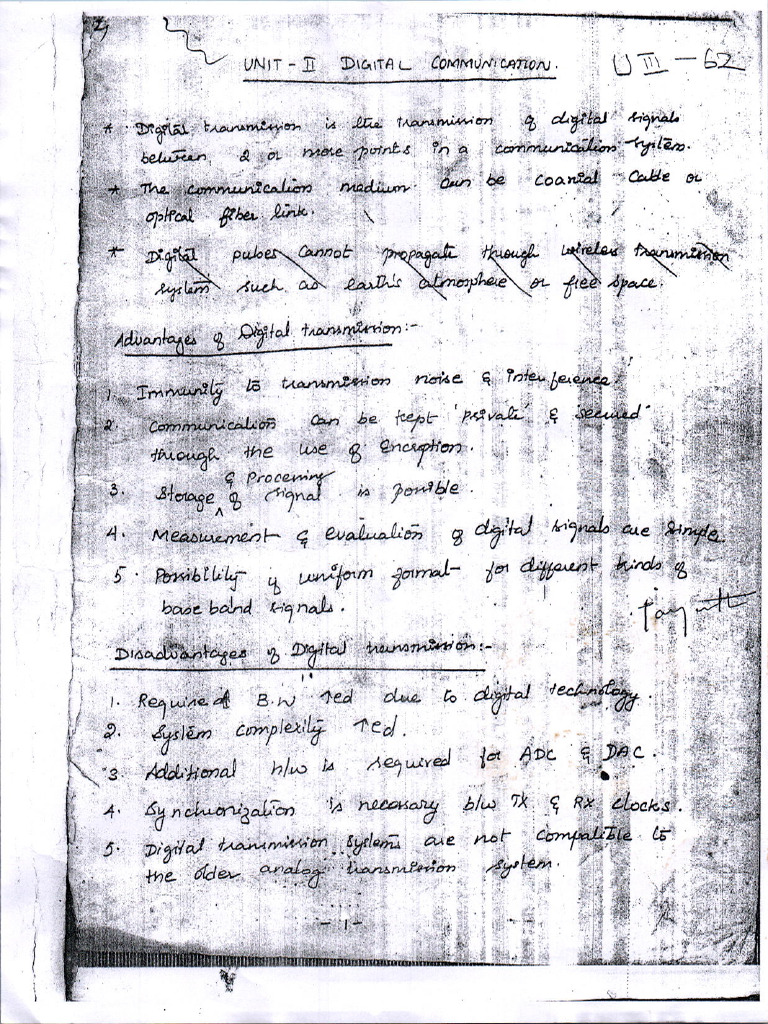 UNIT - II DIGITAL COMMUNICATION. U III - 62
* Digital transmission is the transmission of digital signals
between 2 or more points in a communication system.
* The communication medium can be coaxial cable or
optical fiber link.
* Digital pulses cannot propagate through wireless transmission
system such as earth's atmosphere or free space.
Advantages of Digital transmission:-
1. Immunity to transmission noise & interference.
2. Communication can be kept 'private' & secured
through the use of Encryption.
& Processing
3. Storage ^ of signal is possible.
4. Measurement & evaluation of digital signals are simple.
5. Possibility of uniform format for different kinds of
base band signals.
Disadvantages of Digital transmission:-
1. Required B.W ↑ed due to digital technology.
2. System complexity ↑ed.
3. Additional h/w is required for ADC & DAC.
4. Synchronization is necessary b/w TX & RX clocks.
5. Digital transmission systems are not compatible to
the older analog transmission system.
- 1 -